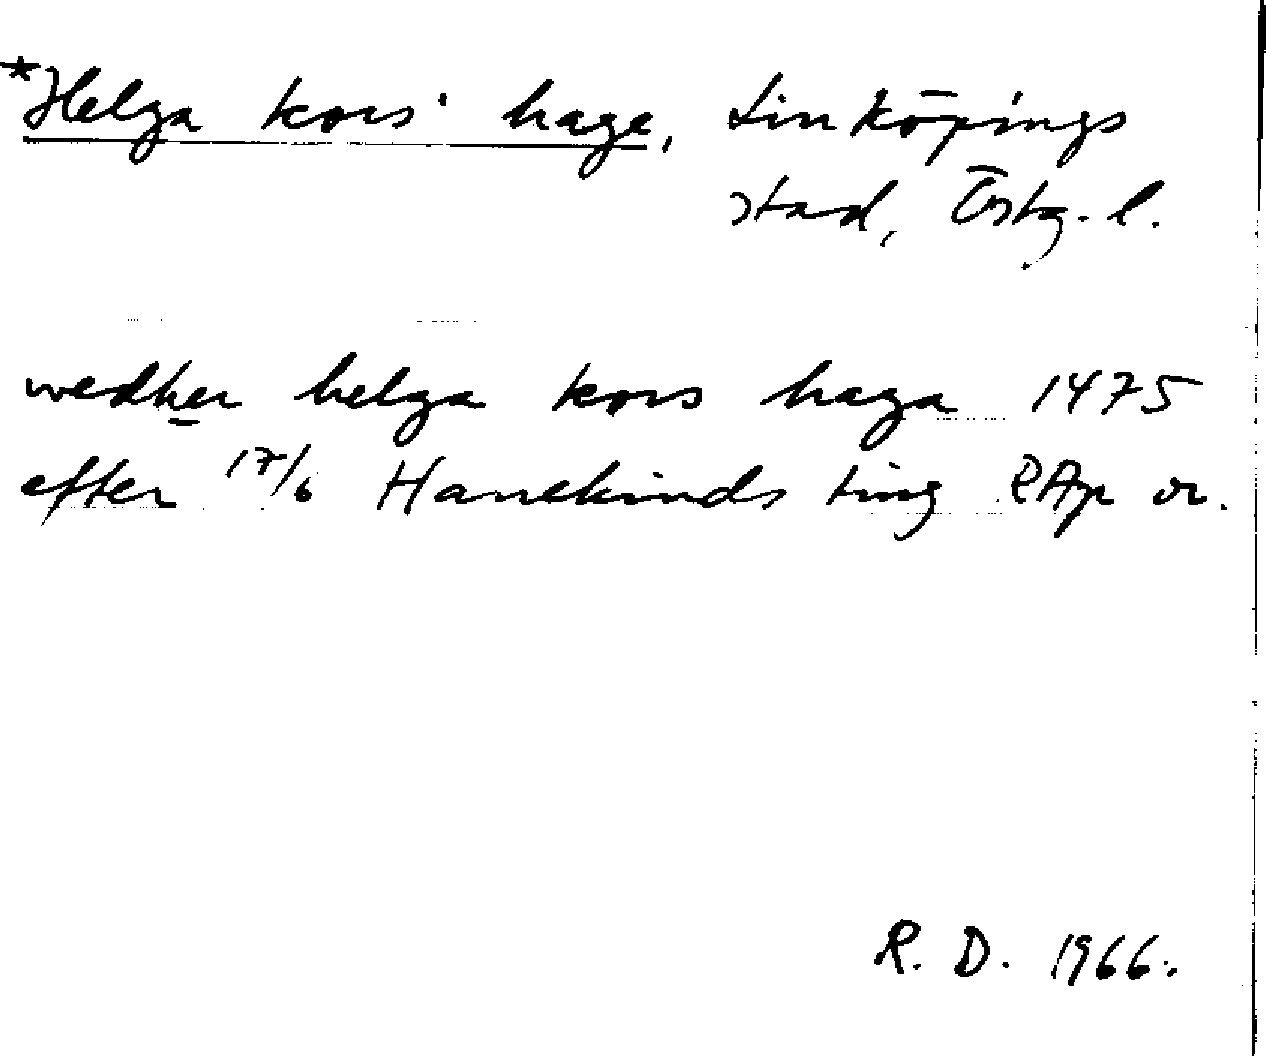 *Helga kors' hage, Linköpings
stad, Östg. l.
wedher helga kors haga 1475
efter 17/6 Hanekinds ting RAp or.
R. D. 1966.